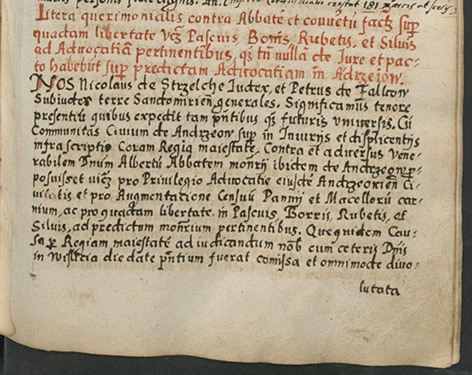 Litera querimonialis contra Abbatē et convētū facta sup
quadam libertate vcz Pascuis, Borris, Rubetis, et Siluis
ad Advocatiā pertinentibus, qs tn nulla de Jure et pac-
to habebūt sup predictam Aduocatiam in Adrzeiow.
NOS Nicolaus de Strzelche Judex, et Petrus de Falcow
Subiudex terre Sandomiriēn generales. Significamus tenore
presentiū quibus expedit tam pntibus qs futuris vniversis. Cū
Communitas Civium de Andrzeow sup in Iniurijs et displicentijs
infrascriptis Coram Regia maiestate. Contra et adversus Vene-
rabilem Dnum Albertū Abbatem monrij ibidem de Andrzeow p-
posuisset vicz pro Privilegio Advocatie eiusde Andrzeowien Ci-
vitatis et pro Augmentatione Censuū Panni et Macellorū car-
nium, ac pro quadam libertate in Pascuis, Borris, Rubetis, et
Siluis, ad predictum monrium pertinentibus. Que quidem Cau-
sa p Regiam maiestatē ad iudicandum nob cum ceteris Dnis
in Wislicia die date pntium fuerat comissa et omnimode divo-
lutata